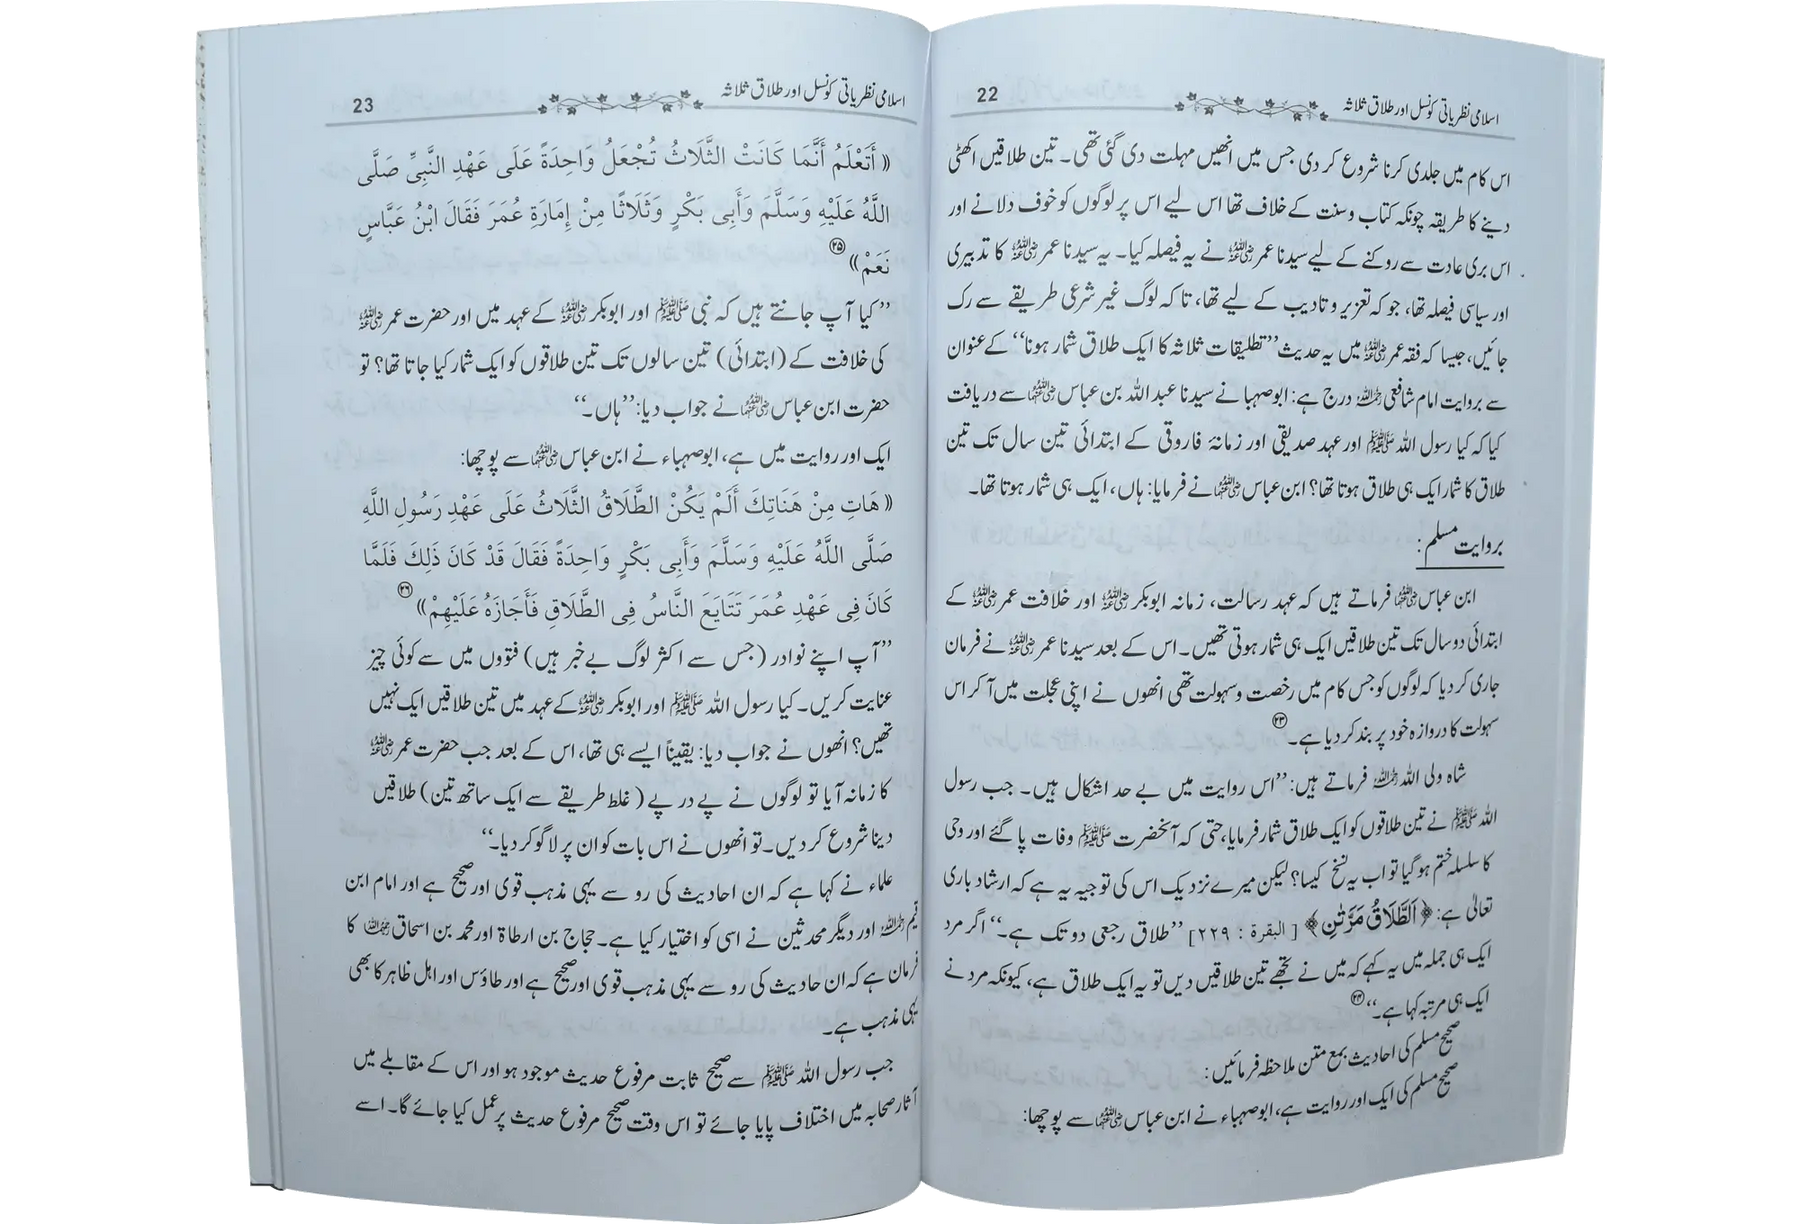 اسلامی نظریاتی کونسل اور طلاق ثلاثہ 22
اس کام میں جلدی کرنا شروع کر دی جس میں انھیں مہلت دی گئی تھی۔ تین طلاقیں اکھٹی
دینے کا طریقہ چونکہ کتاب وسنت کے خلاف تھا اس لیے اس پر لوگوں کو خوف دلانے اور
اس بری عادت سے روکنے کے لیے سیدنا عمر رضی اللہ عنہ نے یہ فیصلہ کیا۔ یہ سیدنا عمر رضی اللہ عنہ کا تدبیری
اور سیاسی فیصلہ تھا، جو کہ تعزیر و تادیب کے لیے تھا، تا کہ لوگ غیر شرعی طریقے سے رک
جائیں، جیسا کہ فقہ عمر رضی اللہ عنہ میں یہ حدیث ’’تطلیقات ثلاثہ کا ایک طلاق شمار ہونا‘‘ کے عنوان
سے بروایت امام شافعی رحمہ اللہ درج ہے: ابوصہبا نے سیدنا عبد اللہ بن عباس رضی اللہ عنہما سے دریافت
کیا کہ کیا رسول اللہ ﷺ اور عہد صدیقی اور زمانۂ فاروقی کے ابتدائی تین سال تک تین
طلاق کا شمار ایک ہی طلاق ہوتا تھا؟ ابن عباس رضی اللہ عنہما نے فرمایا: ہاں، ایک ہی شمار ہوتا تھا۔
بروایت مسلم:
ابن عباس رضی اللہ عنہما فرماتے ہیں کہ عہد رسالت، زمانہ ابوبکر رضی اللہ عنہ اور خلافت عمر رضی اللہ عنہ کے
ابتدائی دو سال تک تین طلاقیں ایک ہی شمار ہوتی تھیں۔ اس کے بعد سیدنا عمر رضی اللہ عنہ نے فرمان
جاری کر دیا کہ لوگوں کو جس کام میں رخصت و سہولت تھی انھوں نے اپنی عجلت میں آ کر اس
سہولت کا دروازہ خود پر بند کر دیا ہے۔ ۲۳
شاہ ولی اللہ رحمہ اللہ فرماتے ہیں: ’’اس روایت میں بے حد اشکال ہیں۔ جب رسول
اللہ ﷺ نے تین طلاقوں کو ایک طلاق شمار فرمایا، حتی کہ آنحضرت ﷺ وفات پا گئے اور وحی
کا سلسلہ ختم ہو گیا تو اب یہ نسخ کیسا؟ لیکن میرے نزدیک اس کی توجیہ یہ ہے کہ ارشاد باری
تعالیٰ ہے: ﴿اَلطَّلَاقُ مَرَّتٰنِ﴾ [البقرۃ : ۲۲۹] ’’طلاق رجعی دو تک ہے۔‘‘ اگر مرد
ایک ہی جملہ میں یہ کہے کہ میں نے تجھے تین طلاقیں دیں تو یہ ایک طلاق ہے، کیونکہ مرد نے
ایک ہی مرتبہ کہا ہے۔‘‘ ۲۴
صحیح مسلم کی احادیث بمع متن ملاحظہ فرمائیں:
صحیح مسلم کی ایک اور روایت ہے، ابوصہباء نے ابن عباس رضی اللہ عنہما سے پوچھا:
اسلامی نظریاتی کونسل اور طلاق ثلاثہ 23
« أَتَعْلَمُ أَنَّمَا كَانَتْ الثَّلَاثُ تُجْعَلُ وَاحِدَةً عَلَى عَهْدِ النَّبِيِّ صَلَّى
اللَّهُ عَلَيْهِ وَسَلَّمَ وَأَبِي بَكْرٍ وَثَلَاثًا مِنْ إِمَارَةِ عُمَرَ فَقَالَ ابْنُ عَبَّاسٍ
نَعَمْ» ۲۵
’’کیا آپ جانتے ہیں کہ نبی ﷺ اور ابوبکر رضی اللہ عنہ کے عہد میں اور حضرت عمر رضی اللہ عنہ
کی خلافت کے (ابتدائی) تین سالوں تک تین طلاقوں کو ایک شمار کیا جاتا تھا؟ تو
حضرت ابن عباس رضی اللہ عنہما نے جواب دیا: ’’ہاں۔‘‘
ایک اور روایت میں ہے، ابوصہباء نے ابن عباس رضی اللہ عنہما سے پوچھا:
« هَاتِ مِنْ هَنَاتِكَ أَلَمْ يَكُنْ الطَّلَاقُ الثَّلَاثُ عَلَى عَهْدِ رَسُولِ اللَّهِ
صَلَّى اللَّهُ عَلَيْهِ وَسَلَّمَ وَأَبِي بَكْرٍ وَاحِدَةً فَقَالَ قَدْ كَانَ ذَلِكَ فَلَمَّا
كَانَ فِي عَهْدِ عُمَرَ تَتَايَعَ النَّاسُ فِي الطَّلَاقِ فَأَجَازَهُ عَلَيْهِمْ» ۲۶
’’آپ اپنے نوادر (جس سے اکثر لوگ بے خبر ہیں) فتووں میں سے کوئی چیز
عنایت کریں۔ کیا رسول اللہ ﷺ اور ابوبکر رضی اللہ عنہ کے عہد میں تین طلاقیں ایک نہیں
تھیں؟ انھوں نے جواب دیا: یقیناً ایسے ہی تھا، اس کے بعد جب حضرت عمر رضی اللہ عنہ
کا زمانہ آیا تو لوگوں نے پے در پے (غلط طریقے سے ایک ساتھ تین) طلاقیں
دینا شروع کر دیں۔ تو انھوں نے اس بات کو ان پر لاگو کر دیا۔‘‘
علماء نے کہا ہے کہ ان احادیث کی رو سے یہی مذہب قوی اور صحیح ہے اور امام ابن
قیم رحمہ اللہ اور دیگر محدثین نے اسی کو اختیار کیا ہے۔ حجاج بن ارطاۃ اور محمد بن اسحاق رحمہ اللہ کا
فرمان ہے کہ ان حادیث کی رو سے یہی مذہب قوی اور صحیح ہے اور طاؤس اور اہل ظاہر کا بھی
یہی مذہب ہے۔
جب رسول اللہ ﷺ سے صحیح ثابت مرفوع حدیث موجود ہو اور اس کے مقابلے میں
آثار صحابہ میں اختلاف پایا جائے تو اس وقت صحیح مرفوع حدیث پر عمل کیا جائے گا۔ اسے